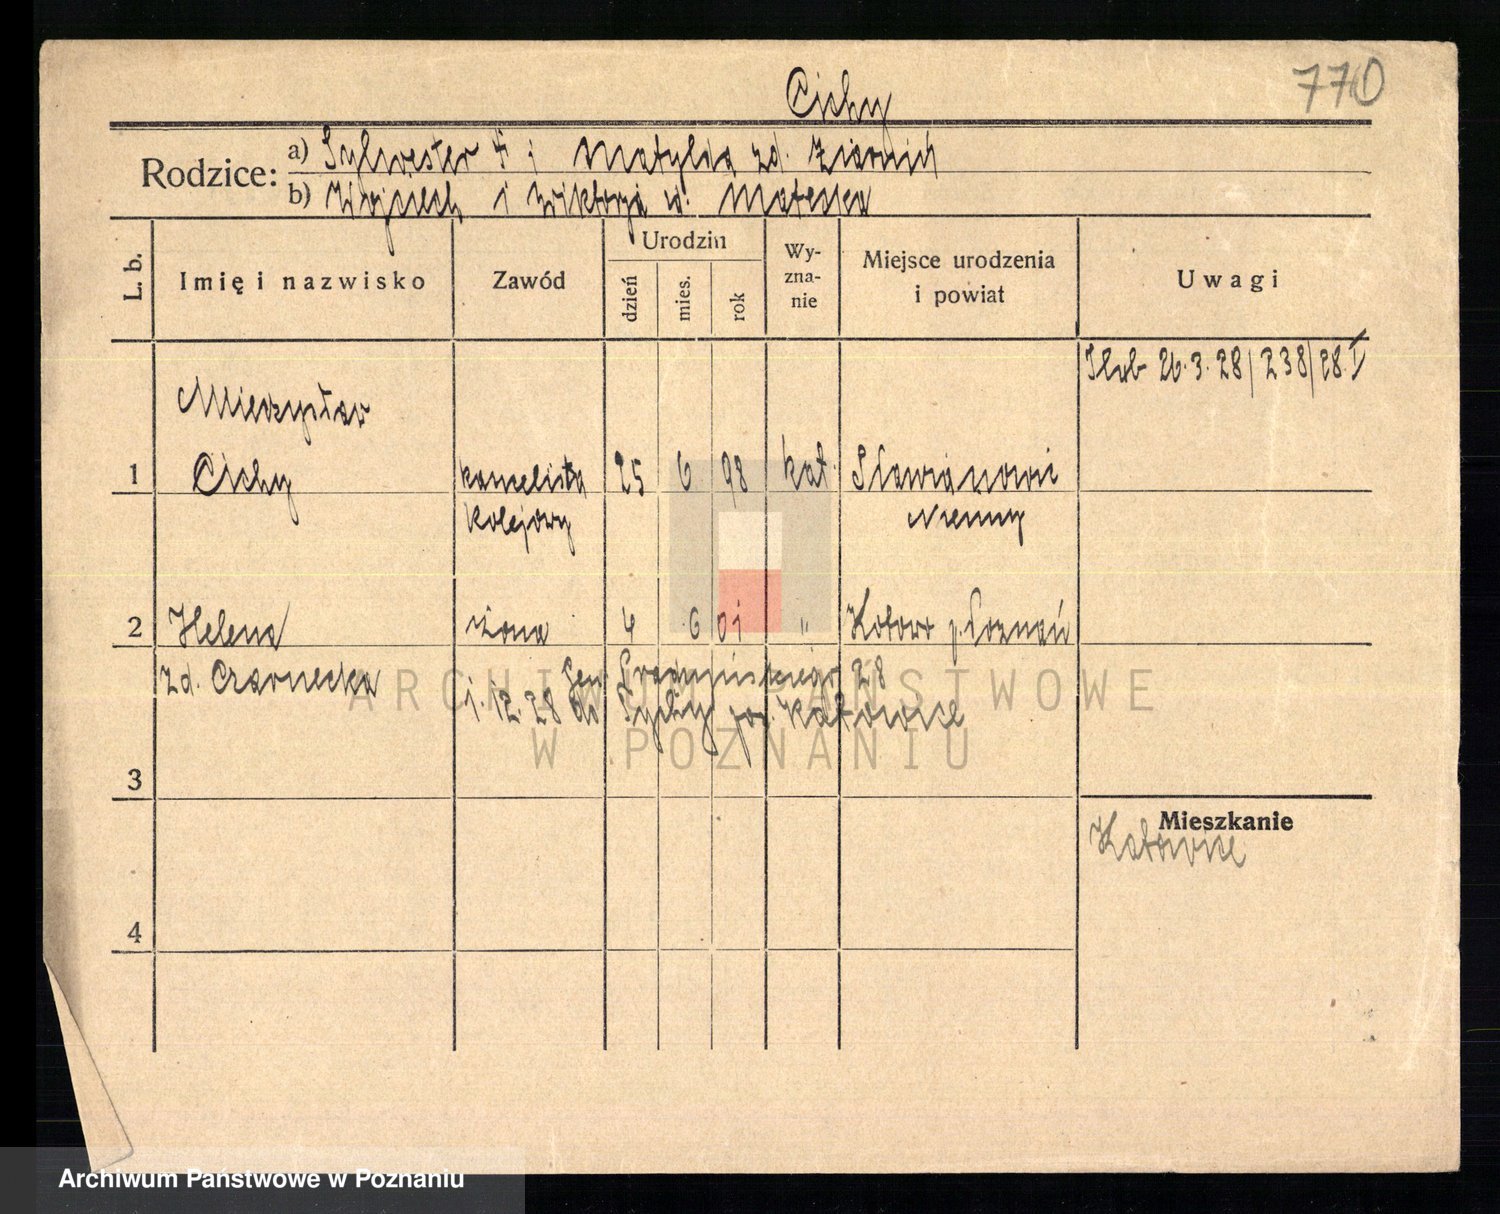 770
Cichy
Rodzice: a) Sylwester i Matylda zd.
b) Wojciech i Wiktorja Mateska
L. b.
Imię i nazwisko
Zawód
Urodzin
dzień
mies.
rok
Wy-
zna-
nie
Miejsce urodzenia
i powiat
Uwagi
26.3.28/238/28.I
Mieczysław
1 Cichy kancelista 25 6 98 kat.
kolejowy Niemcy
2 Helena żona 4 6 01 " Kotowo p. Poznań
zd. Czarnecka Gen. Prądzyńskiego 28
1.12.28 do Tychy pow. Katowice
3
Mieszkanie
Katowice
4
ARCHIWUM PAŃSTWOWE
W POZNANIU
Archiwum Państwowe w Poznaniu